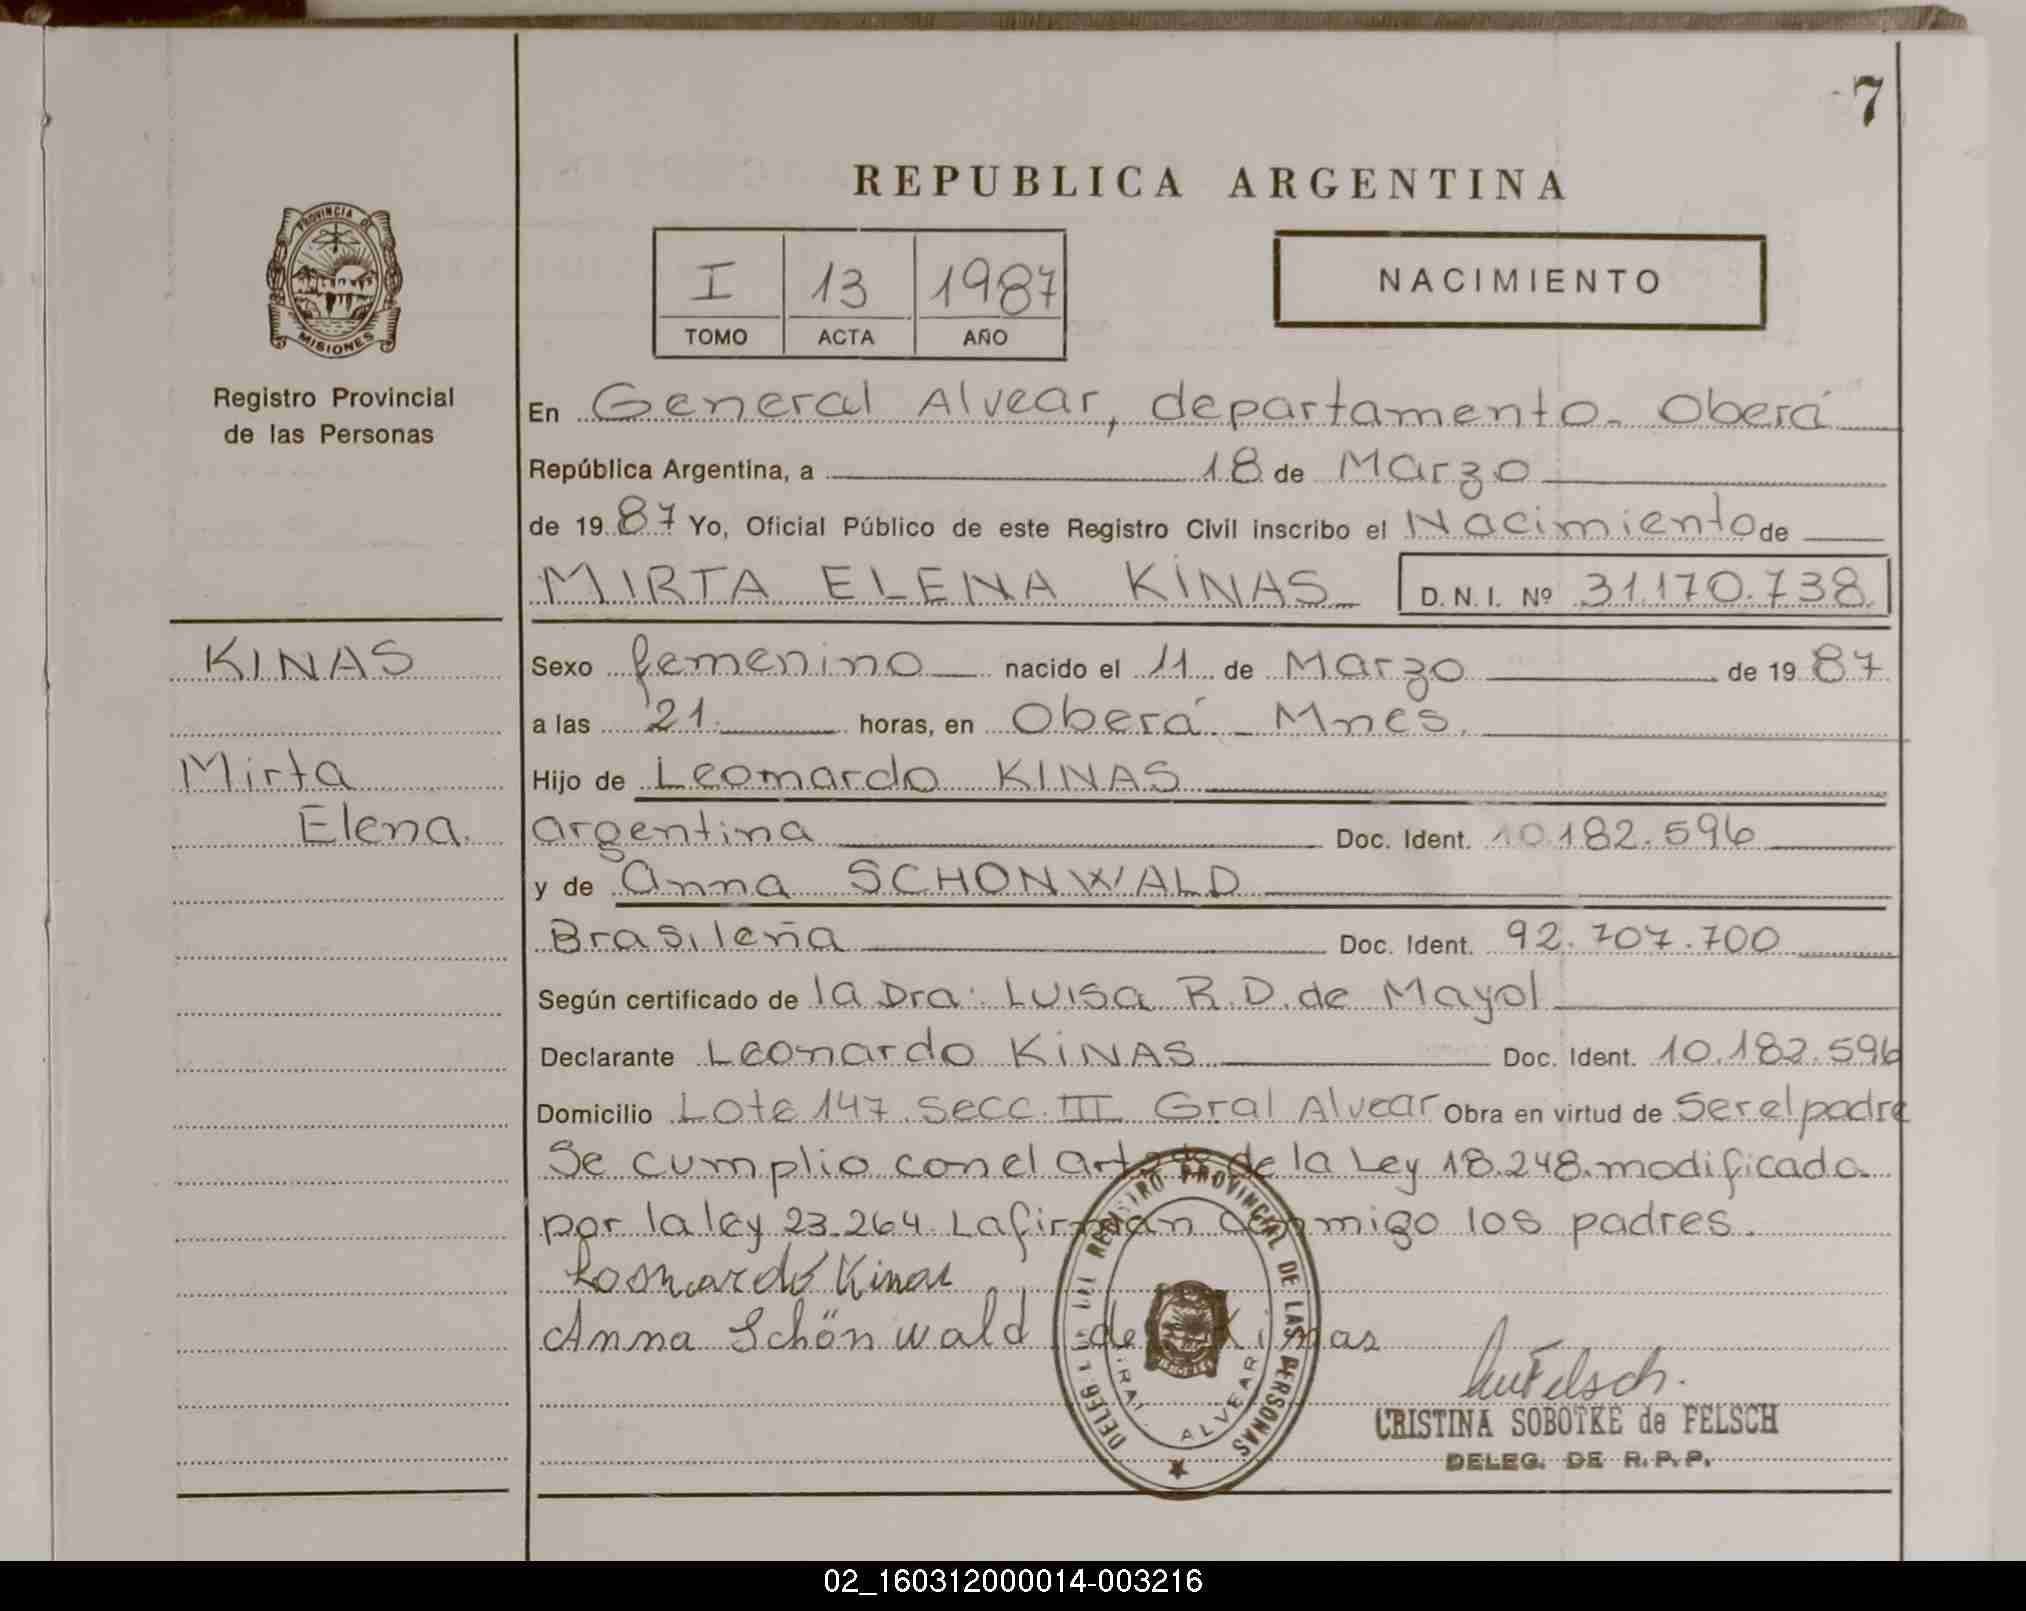 7
REPUBLICA ARGENTINA
PROVINCIA DE
MISIONES
I 13 1987
TOMO ACTA AÑO
NACIMIENTO
Registro Provincial
de las Personas
En General Alvear, departamento - Oberá
República Argentina, a 18 de Marzo
de 1987 Yo, Oficial Público de este Registro Civil inscribo el Nacimiento de
MIRTA ELENA KINAS D.N.I. Nº 31.170.738
KINAS
Mirta
Elena.
Sexo femenino nacido el 11 de Marzo de 1987
a las 21 horas, en Oberá - Mnes.
Hijo de Leonardo KINAS
argentina Doc. Ident. 10.182.596
y de Anna SCHONWALD
Brasileña Doc. Ident. 92.707.700
Según certificado de la Dra. Luisa R.D. de Mayol
Declarante Leonardo KINAS Doc. Ident. 10.182.596
Domicilio Lote 147 Secc. III Gral Alvear Obra en virtud de Ser el padre
Se cumplio con el art de la Ley 18.248. modificada
por la ley 23.264. La firman conmigo los padres.
Leonardo Kinas
Anna Schönwald de Kinas
DELEG. DEL REGISTRO PROVINCIAL DE LAS PERSONAS
GRAL. ALVEAR
CRISTINA SOBOTKE de FELSCH
DELEG. DE R.P.P.
02_160312000014-003216